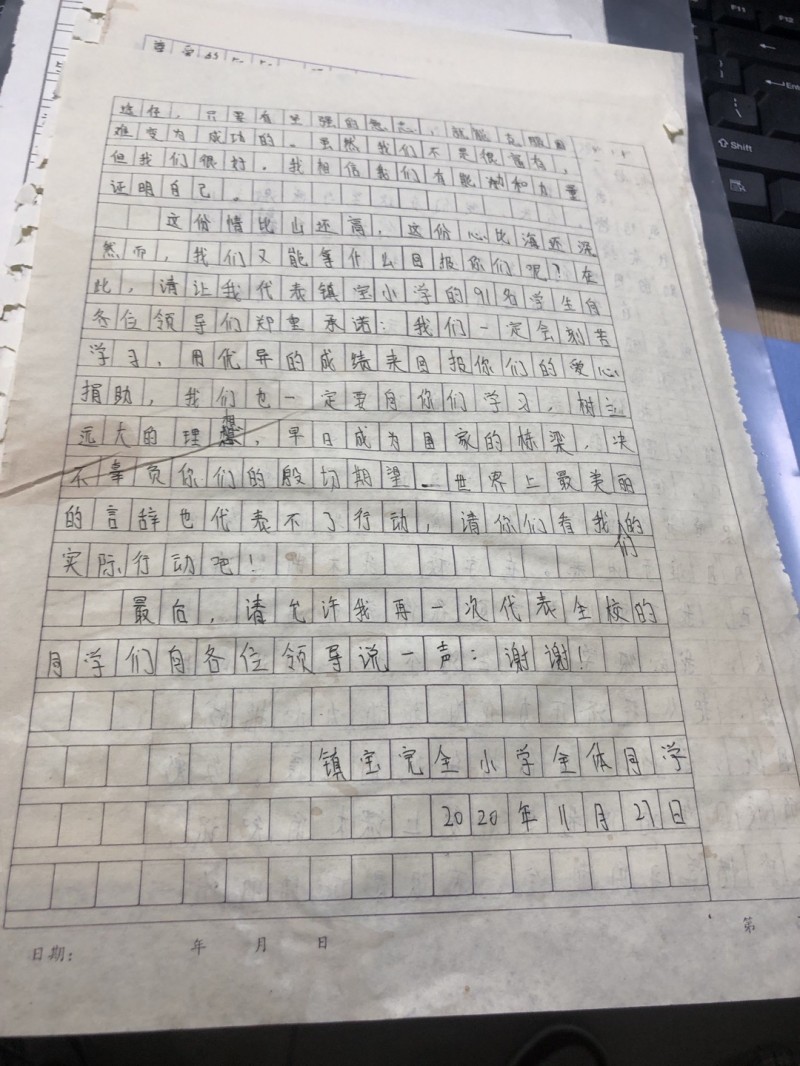 责任，只要有坚强的意志，就能克服困
难变为成功的。虽然我们不是很富有，
但我们很好，我相信我们有能力和力量
证明自己。
这份情比山还高，这份心比海还深
然而，我们又能拿什么回报你们呢？在
此，请让我代表镇宝小学的91名学生向
各位领导们郑重承诺：我们一定会刻苦
学习，用优异的成绩来回报你们的爱心
捐助，我们也一定要向你们学习，树立
远大的理想，早日成为国家的栋梁，决
不辜负你们的殷切期望。世界上最美丽
的言辞也代表不了行动，请你们看我们的
实际行动吧！
最后，请允许我再一次代表全校的
同学们向各位领导说一声：谢谢！
镇宝完全小学全体同学
2020年11月27日
日期： 年 月 日
第